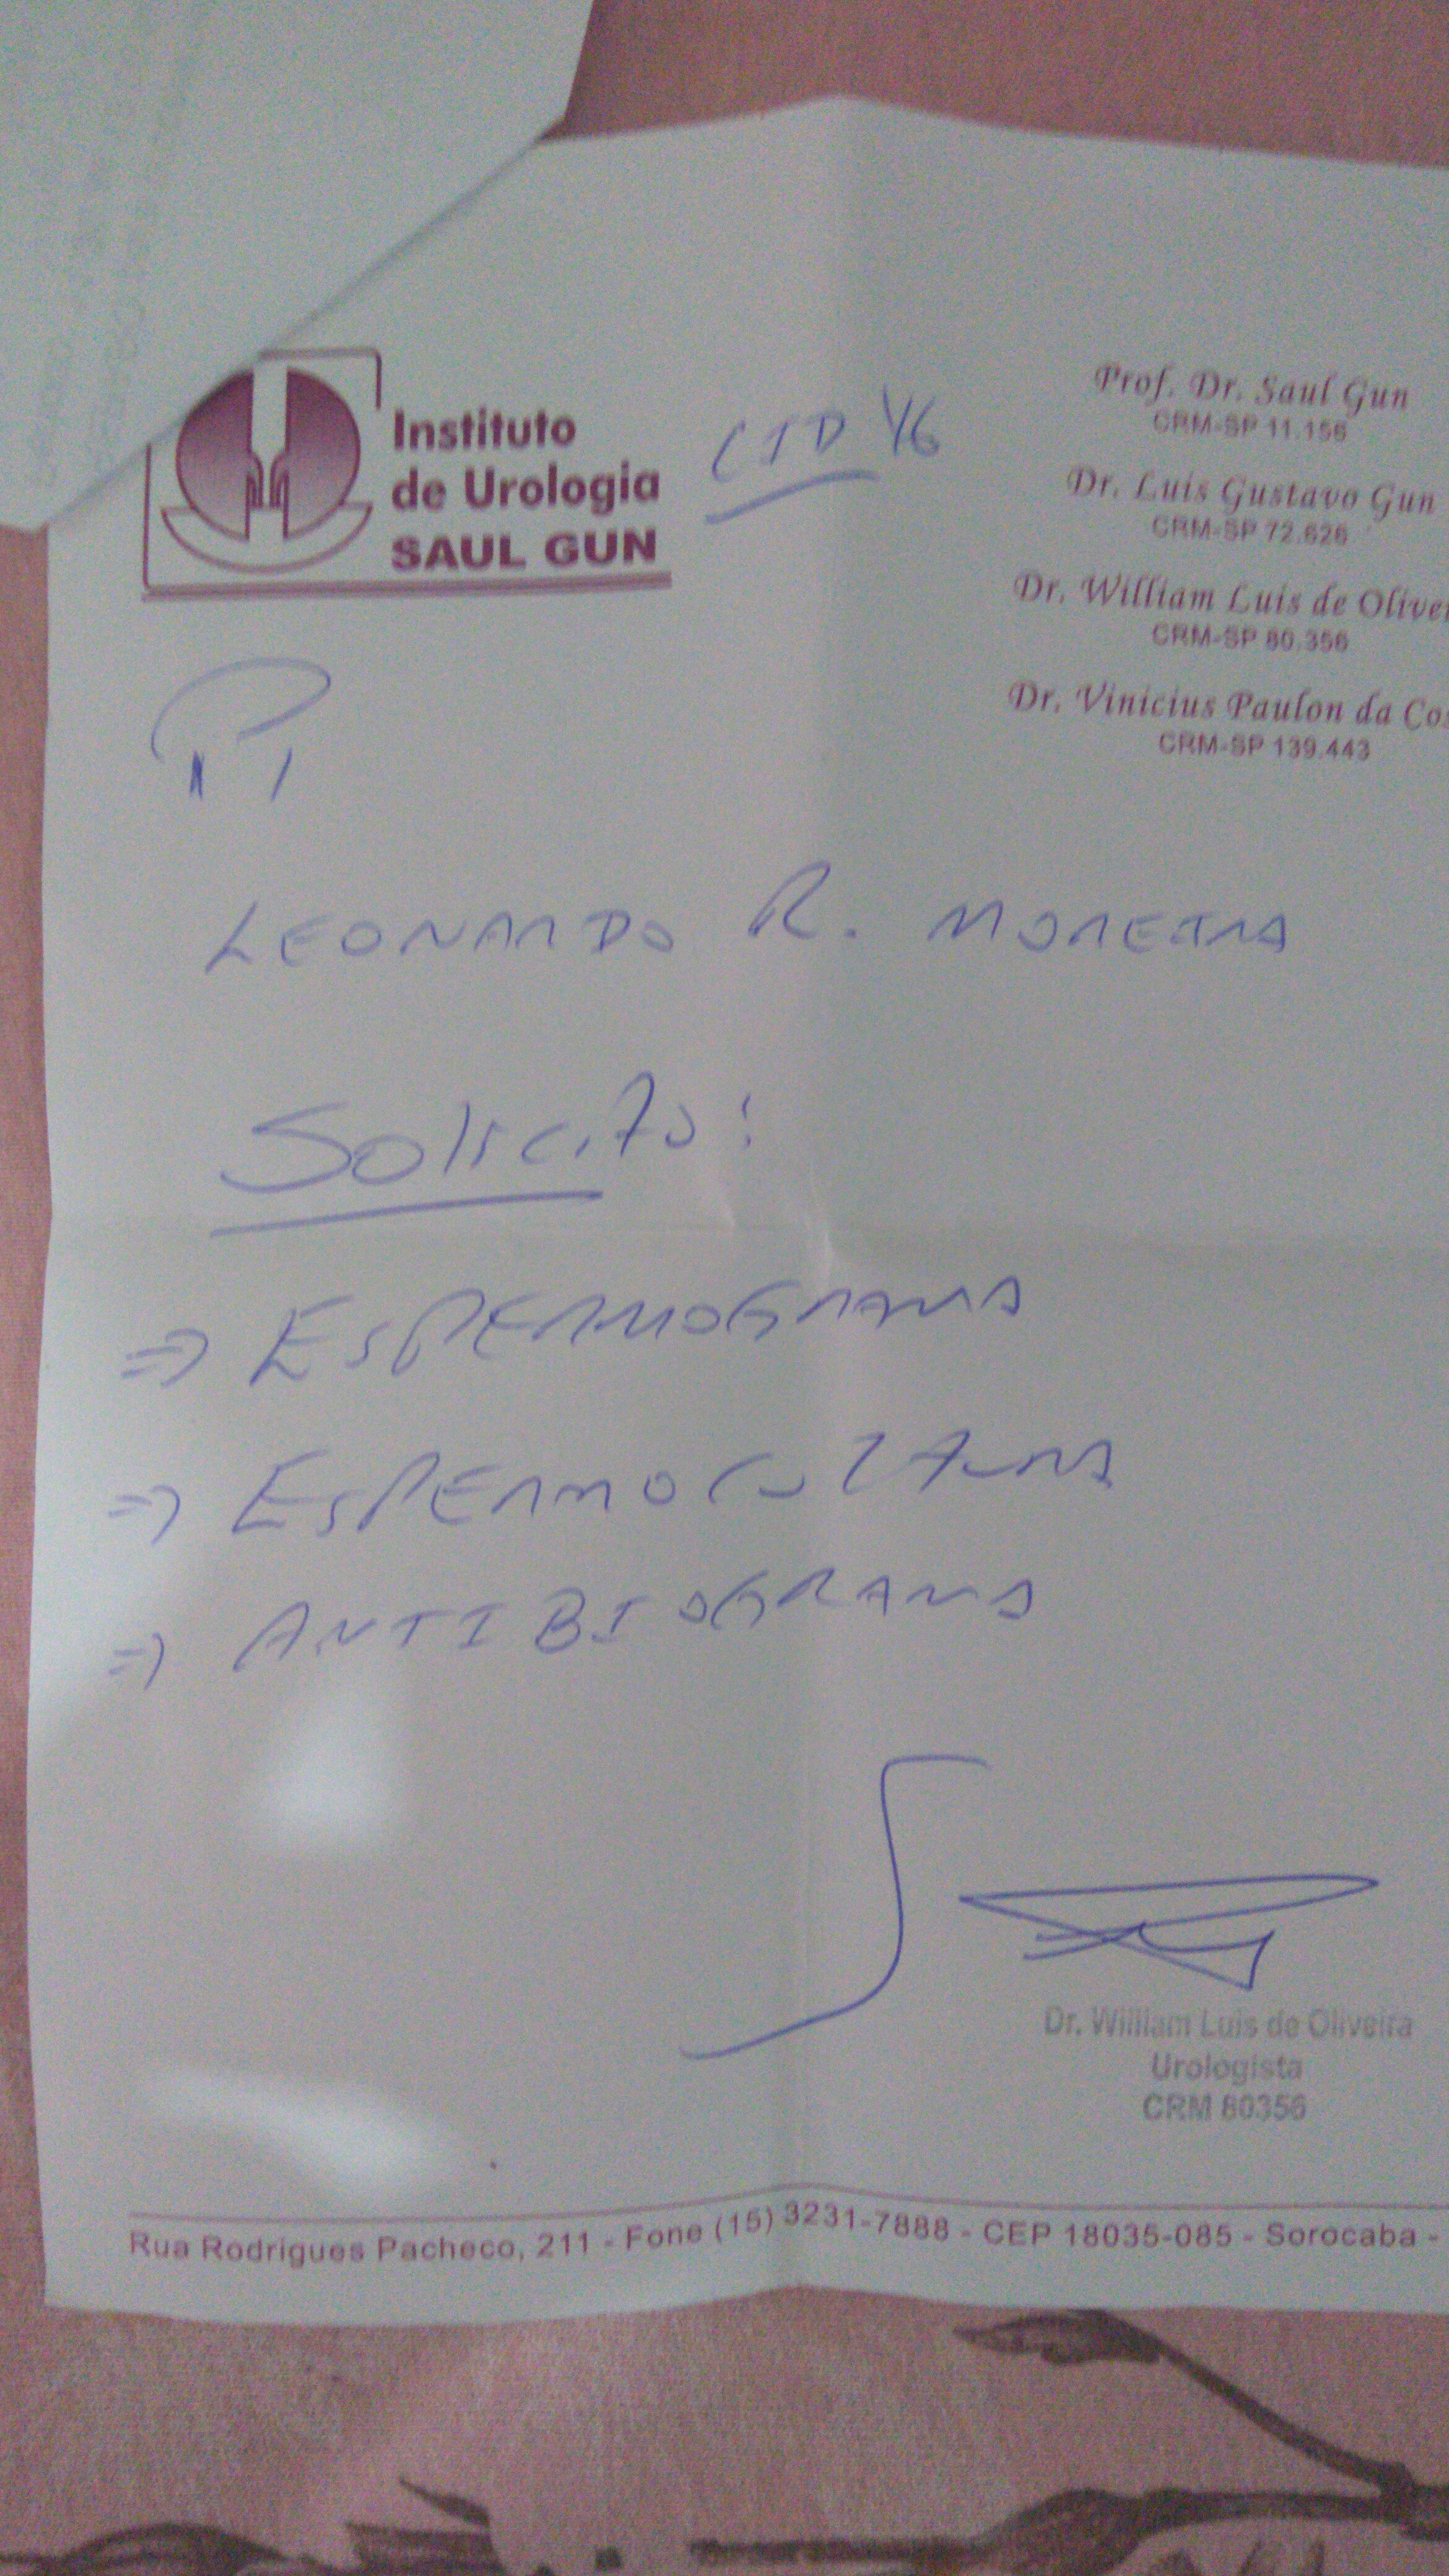 Instituto
de Urologia
SAUL GUN
CID 46
Prof. Dr. Saul Gun
CRM-SP 11.156
Dr. Luis Gustavo Gun
CRM-SP 72.626
Dr. William Luis de Olivei
CRM-SP 80.356
Dr. Vinicius Paulon da Cos
CRM-SP 139.443
P/
LEONARDO R. MOREIRA
Solicito:
=> ESPERMOGRAMA
=> ESPERMOCULTURA
=> ANTIBIOGRAMA
Dr. William Luis de Oliveira
Urologista
CRM 80356
Rua Rodrigues Pacheco, 211 - Fone (15) 3231-7888 - CEP 18035-085 - Sorocaba -